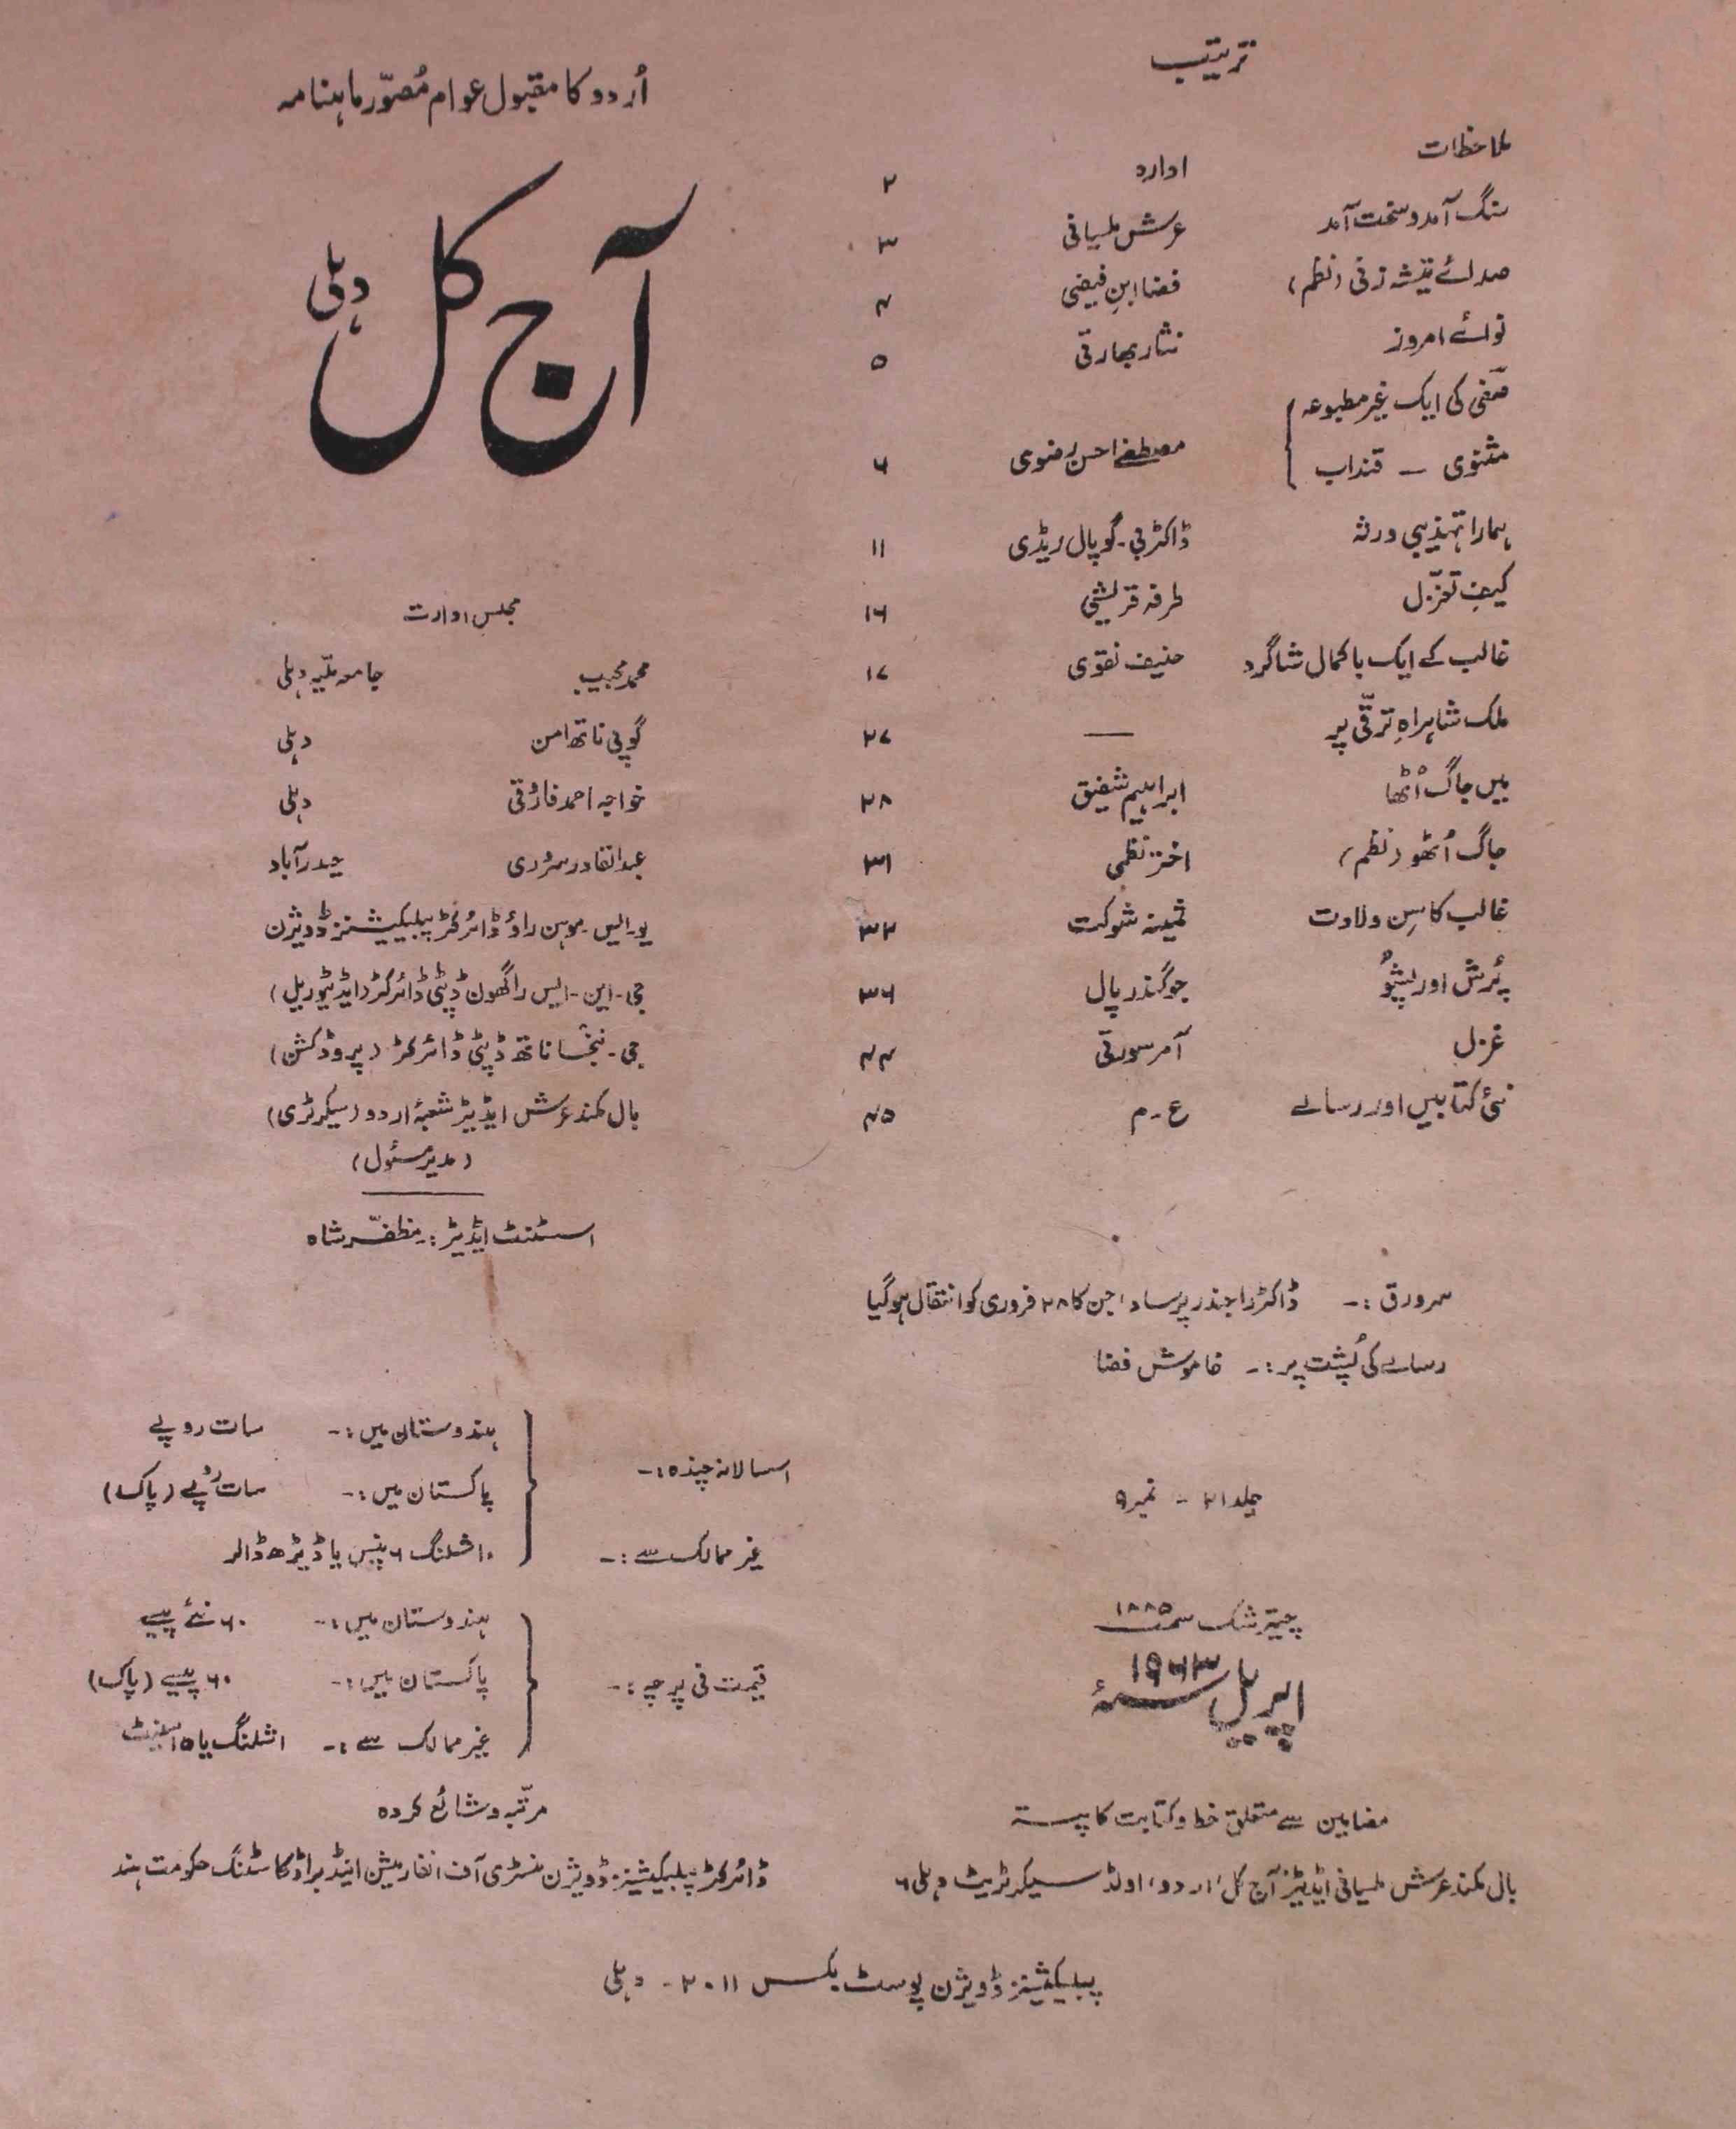 ترتیب
ملاحظات ادارہ ۲
سنگ آمد و سخت آمد عرش ملسیانی ۳
صدائے تیشہ زنی (نظم) فضا ابنِ فیضی ۴
نوائے امروز نثار بھارتی ۵
صفی کی ایک غیر مطبوعہ
مثنوی ۔ قنداب مصطفےٰ احسن رضوی ۶
ہمارا تہذیبی ورثہ ڈاکٹر بی۔ گوپال ریڈی ۱۱
کیفِ تغزّل طرفہ قریشی ۱۶
غالب کے ایک باکمال شاگرد حنیف نقوی ۱۷
ملک شاہراہِ ترقّی پر — ۲۷
میں جاگ اُٹھا ابراہیم شفیق ۲۸
جاگ اُٹھو (نظم) اختر نظمی ۳۱
غالب کا سِن ولادت ثمینہ شوکت ۳۲
پُرش اور پشُو جوگندر پال ۳۶
غزل آمر سورتی ۴۴
نئی کتابیں اور رسالے ع۔م ۴۵
سرورق :۔ ڈاکٹر راجندر پرساد، جن کا ۲۸ فروری کو انتقال ہو گیا
رسالے کی پُشت پر :۔ خاموش فضا
جلد ۲۱ - نمبر ۹
چیتر شک سمت ۱۸۸۵
اپریل سنہ ۱۹۶۳ء
مضامین سے متعلق خط و کتابت کا پتہ
بال مکند عرش ملسیانی ایڈیٹر آج کل (اردو) اولڈ سیکرٹریٹ دہلی ۶
اُردو کا مقبولِ عوام مُصوّر ماہنامہ
آج کل دہلی
مجلس ادارت
محمد مجیب جامعہ ملّیہ دہلی
گوپی ناتھ امن دہلی
خواجہ احمد فاروقی دہلی
عبدالقادر سروری حیدرآباد
یو۔ ایس۔ موہن راؤ ڈائرکٹر پبلیکیشنز ڈویژن
جی۔ این۔ ایس راگھون ڈپٹی ڈائرکٹر (ایڈیٹوریل)
جی۔ ننجنا ناتھ ڈپٹی ڈائرکٹر (پروڈکشن)
بال مکند عرش ایڈیٹر شعبۂ اردو (سیکرٹری)
(مدیر مسئول)
اسسٹنٹ ایڈیٹر :۔ مظفّر شاہ
سالانہ چندہ :۔
ہندوستان میں :۔ سات روپے
پاکستان میں :۔ سات روپے (پاک)
غیر ممالک سے :۔ ۱۰ شلنگ ۶ پنس یا ڈیڑھ ڈالر
قیمت فی پرچہ :۔
ہندوستان میں :۔ ۶۰ نئے پیسے
پاکستان میں :۔ ۶۰ پیسے (پاک)
غیر ممالک سے :۔ ا شلنگ یا ۱۵ سینٹ
مرتّبہ و شائع کردہ
ڈائرکٹر پبلیکیشنز ڈویژن منسٹری آف انفارمیشن اینڈ براڈکاسٹنگ حکومت ہند
پبلیکیشنز ڈویژن پوسٹ بکس ۲۰۱۱ - دہلی